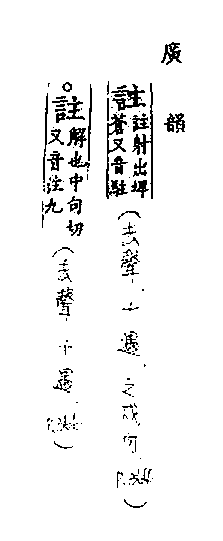 廣韻
註 註射出埤
蒼又音駐
(去聲.十遇.之戍
○註 解也中句切
又音注九
(去聲.十遇.